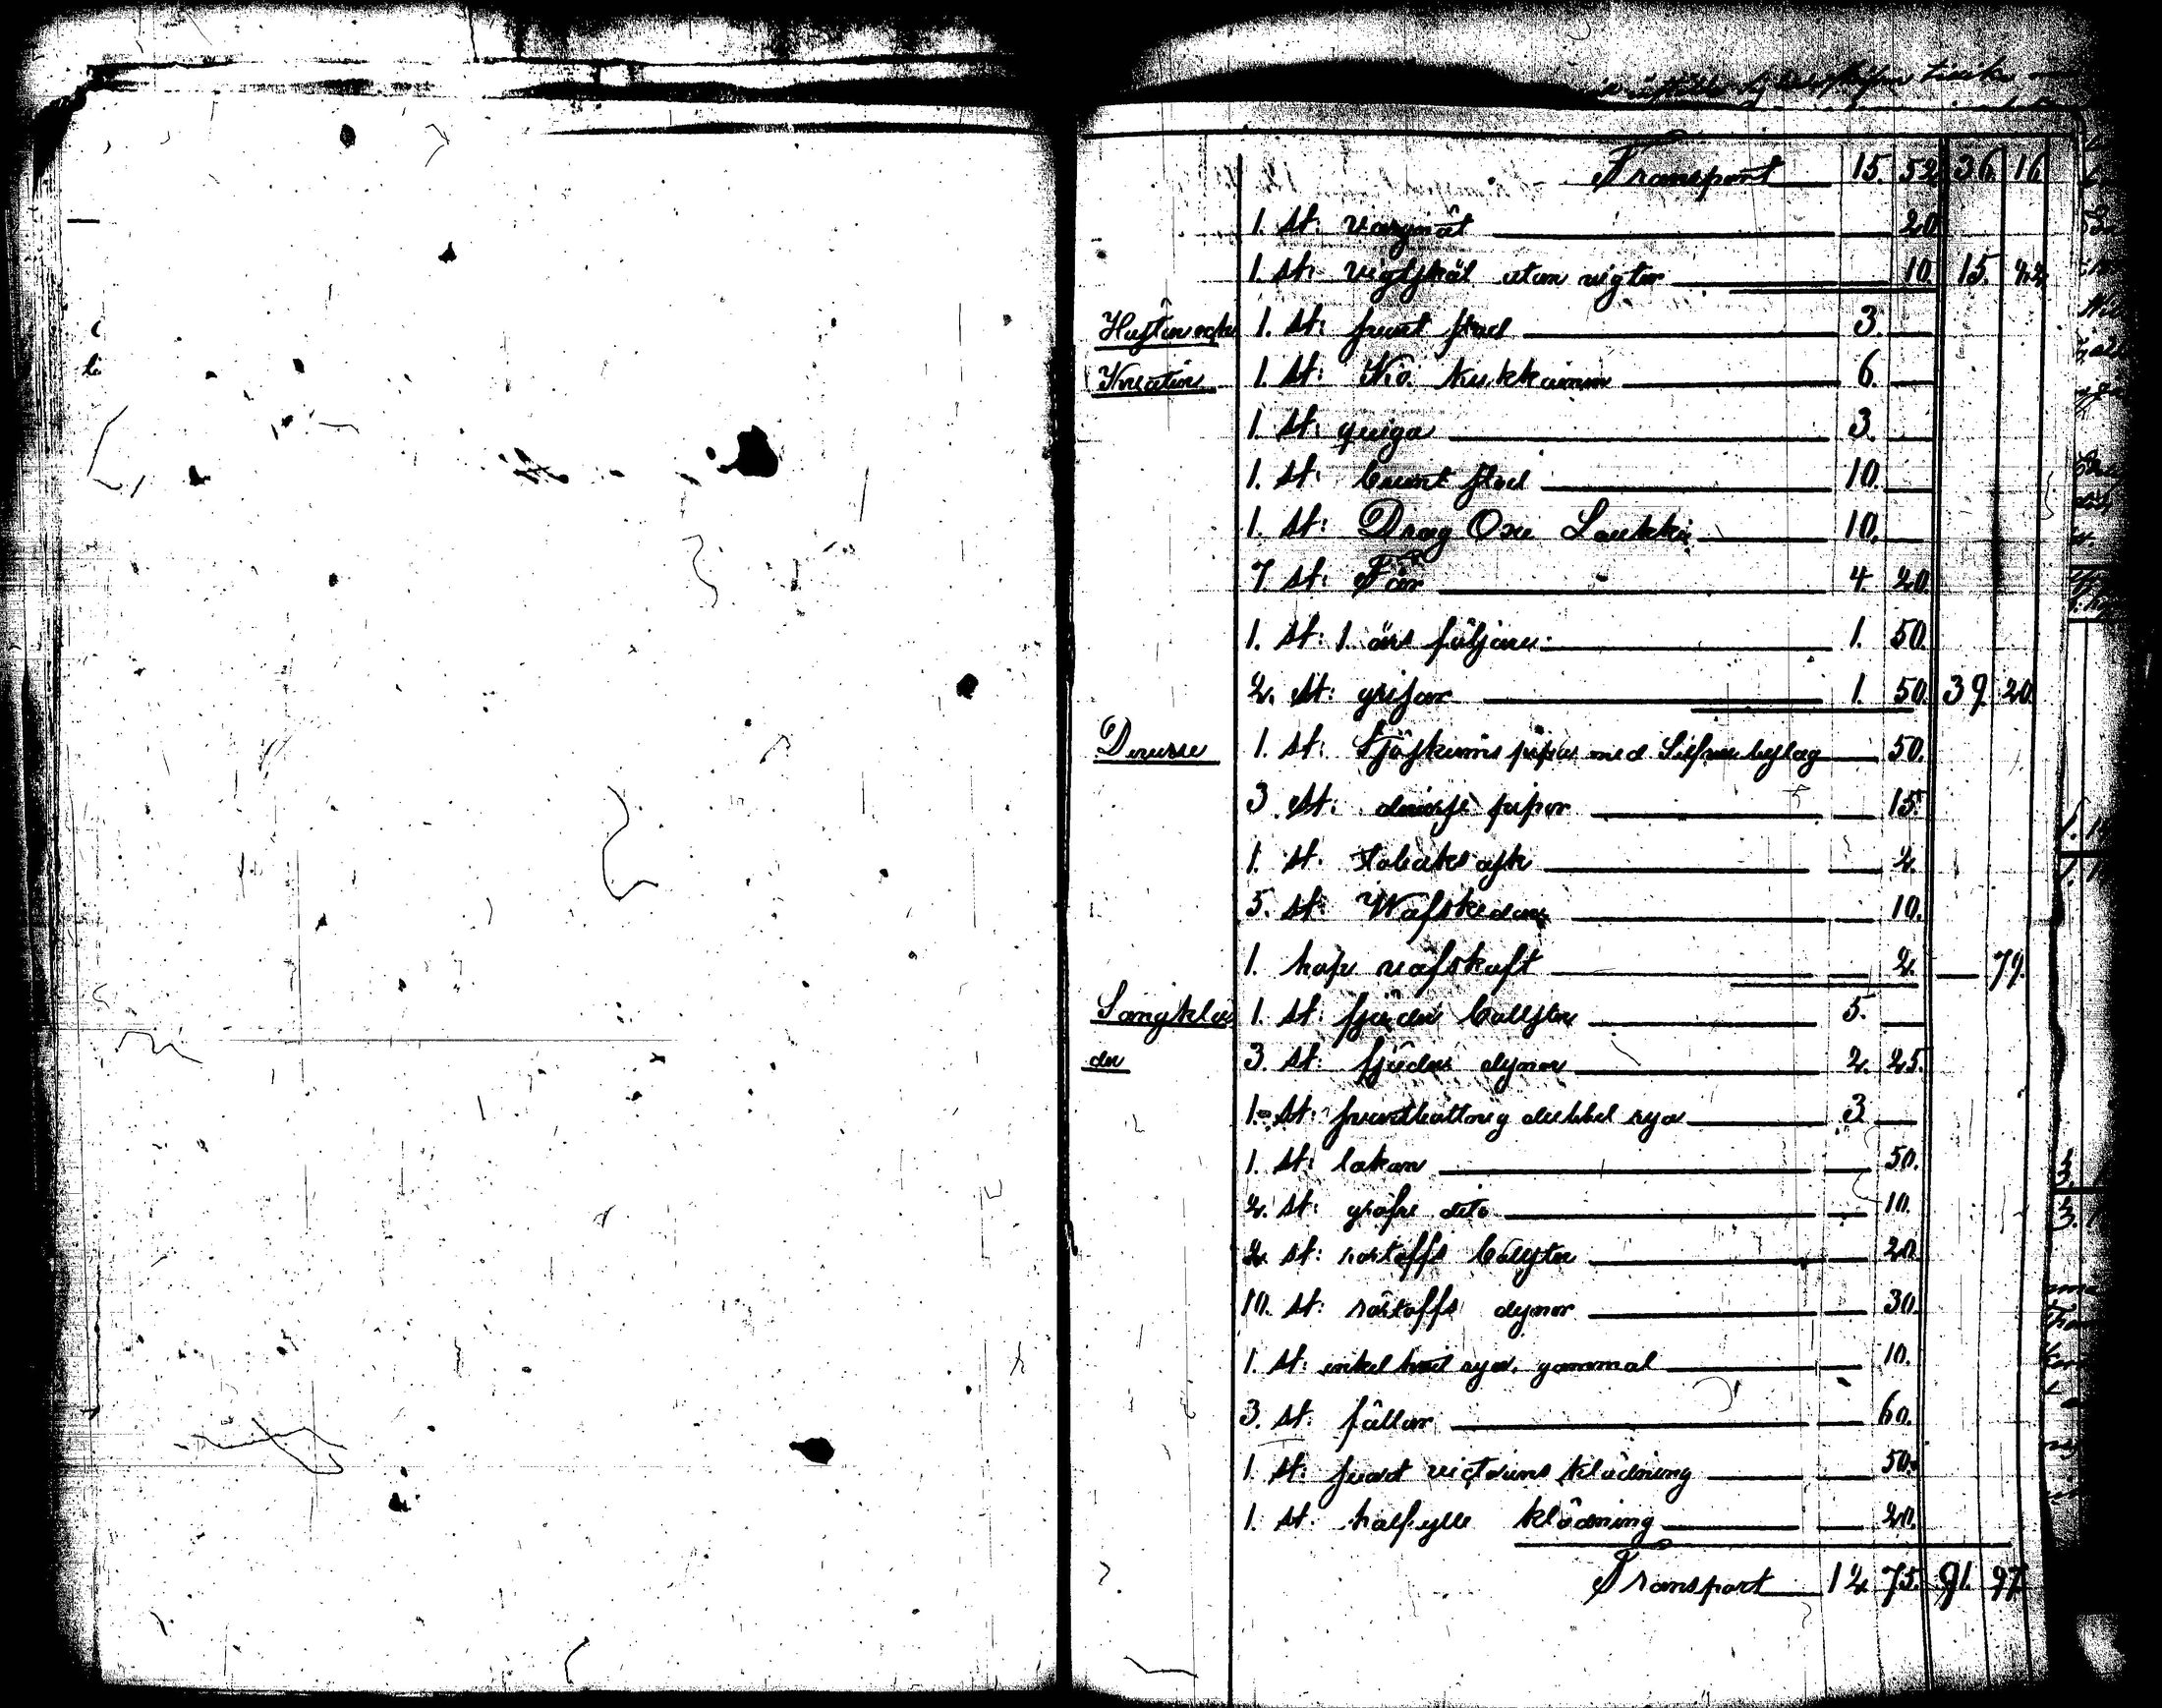 Transport 15. 52 36. 16.
1. st: vargnät 20
1. st: vigtskål utan vigter 10. 15. 82
1. st: svart stod 3.
Kreatur 1. st: Ko. Kukkamm 6.
1. st: quiga 3.
1. st: brunt stod 10.
1. st: Drag Oxe Laukki 10.
7. st: Får 4. 20.
1. st: 1. års följare 1. 50.
2. st: grisar 1. 50. 39. 20.
Diverse 1. st: Sjöskums pipa med Silfver beslag 50.
3. st: diverse pipor 15.
1. st. Tobaks ask 2.
5. st: Wäfskedar 10.
1. hop väfskaft 2. 79.
Sängklä 1. st: fjäder bollster 5.
der 3. st: fjäder dynor 2. 25.
1. st: dubbel rya 3
1. st: lakan 50.
2. st: grofre dito 10.
2. st: rostoffs bollster 20.
10. st: rostoffs dynor 30.
1. st: enkel hvit rya gammal 10.
3. st: fällar 60.
1. st: svart klädning 50.
1. st: halfylle klädning 20.
Transport 12 75. 91. 97